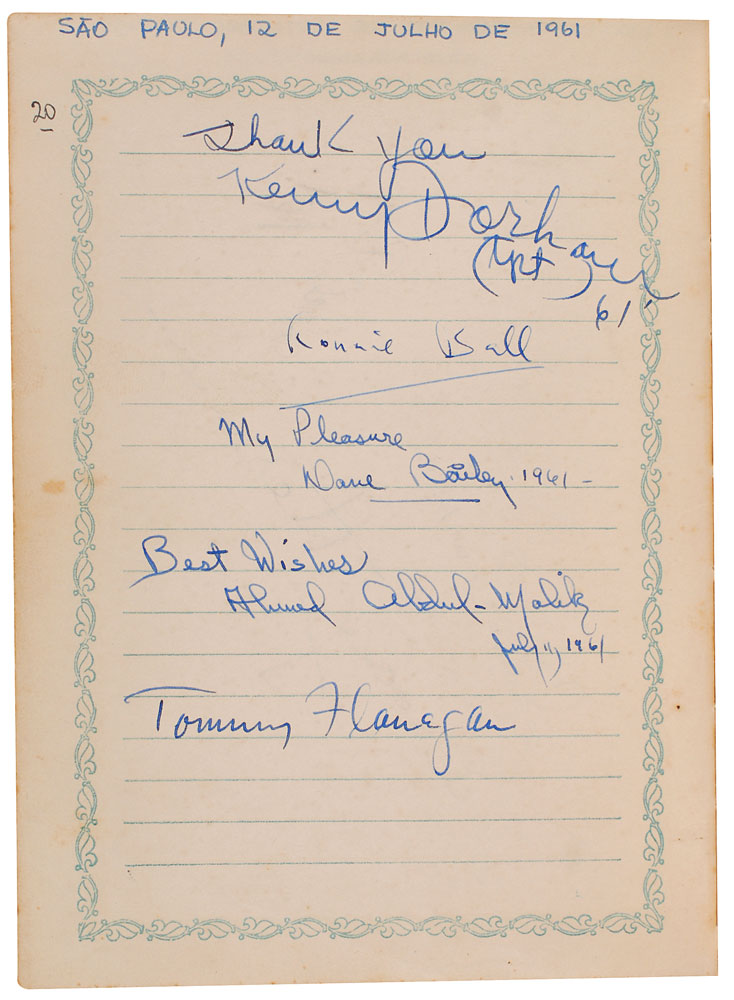 SÃO PAULO, 12 DE JULHO DE 1961
20
Thank you
Kenny Dorham
(tpt)
61'
Ronnie Ball
My Pleasure
Dave Bailey. 1961 -
Best Wishes
Ahmed Abdul-Malik
July 11, 1961
Tommy Flanagan